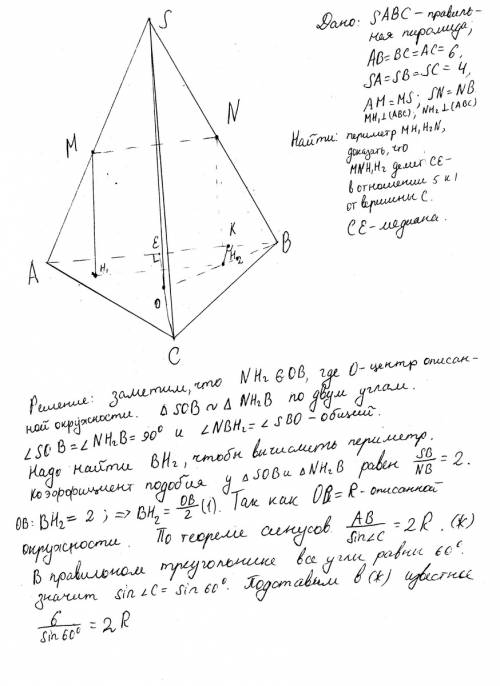 S
Дано: SABC – правиль-
ная пирамида;
AB = BC = AC = 6,
SA = SB = SC = 4,
AM = MS; SN = NB
MH₁⊥(ABC), NH₂⊥(ABC)
Найти: периметр MH₁H₂N,
доказать, что
MNH₁H₂ делит CE –
в отношении 5 к 1
от вершины C.
CE – медиана.
M
N
E
K
A
H₁
H₂
B
O
C
Решение: заметим, что NH₂ ∈ OB, где O – центр описан-
ной окружности. △ SOB ∼ △ NH₂B по двум углам.
∠SOB = ∠NH₂B = 90° и ∠NBH₂ = ∠SBO – общий.
Надо найти BH₂, чтобы вычислить периметр.
коэффициент подобия у △SOB и △NH₂B равен SB/NB = 2.
OB : BH₂ = 2 ; ⇒ BH₂ = OB/2 (1). Так как OB = R – описанной
окружности. По теореме синусов AB/sin∠C = 2R . (*)
В правильном треугольнике все углы равны 60°.
значит sin∠C = sin 60°. Подставим в (*) известное
6/sin 60° = 2R